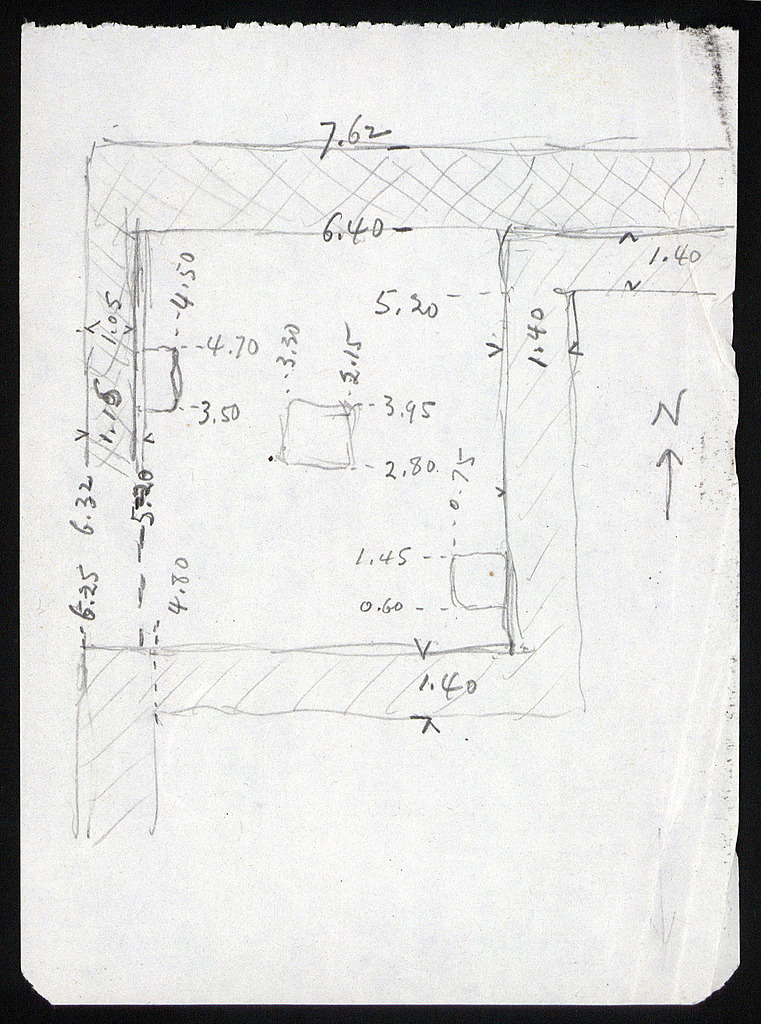 7.62
6.40
1.40
4.50
5.20
1.05
1.40
4.70
3.30
2.15
3.50
3.95
1.15
2.80
N
0.75
6.32
5.20
1.45
6.25
4.80
0.60
1.40